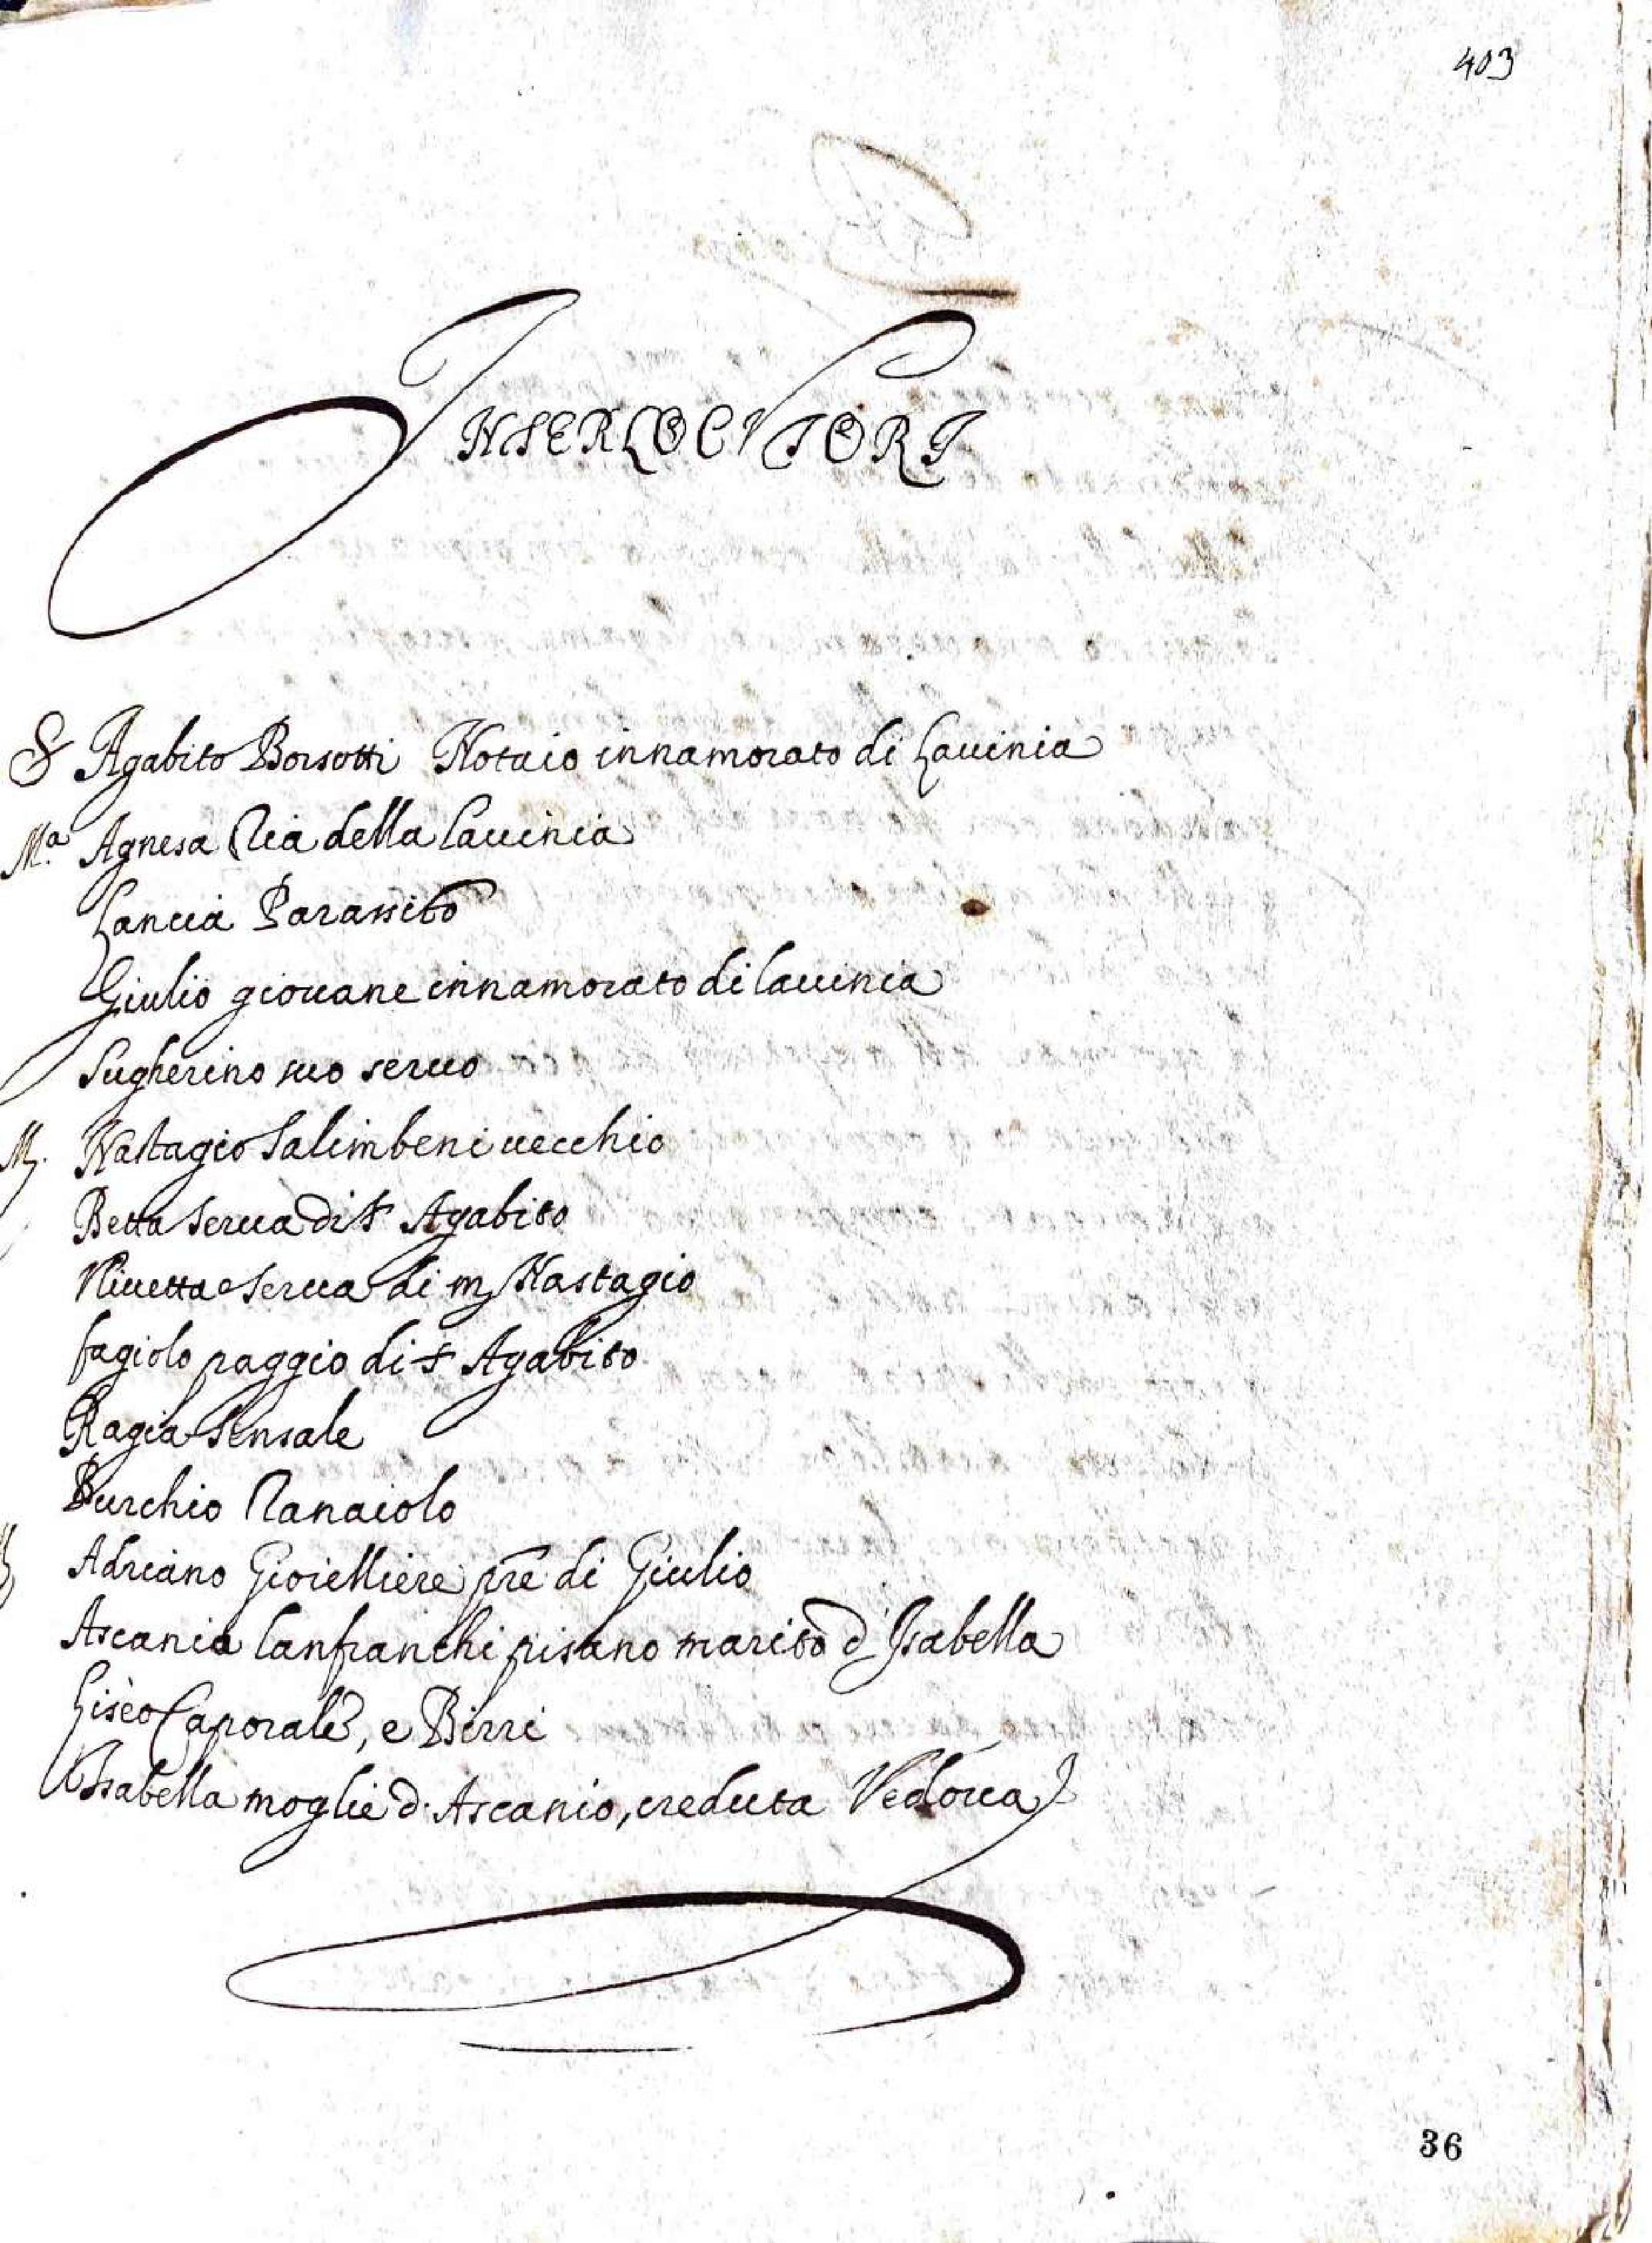 403
INTERLOCVTORI
S Agabito Borsotti Notaio innamorato di Lauinia
M.ª Agnesa Zia della Lauinia
Lancia Parassito
Giulio giouane innamorato di lauinia
Sugherino suo seruo
M. Nastagio Salimbeni uecchio
Betta Serua di S Agabito
Niuetta Serua di m Nastagio
fagiolo paggio di S Agabito
Ragia Sensale
Burchio Zanaiolo
Adriano Gioielliere pre di Giulio
Ascanio lanfranchi pisano marito d' Isabella
Caporale, e Birri
Isabella moglie d. Ascanio, creduta Vedoua
36